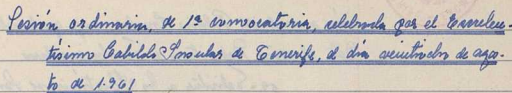 Sesión ordinaria, de 1ª convocatoria, celebrada por el Excelen-
tísimo Cabildo Insular de Tenerife, el día veintiocho de agos-
to de 1.961